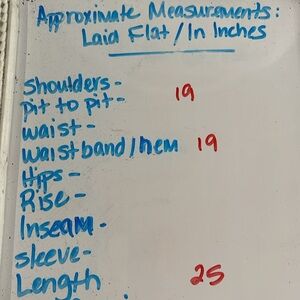 Approximate Measurements:
Laid Flat/In Inches
Shoulders-
Pit to pit- 19
Waist-
Waistband/hem 19
Hips-
Rise-
Inseam-
Sleeve-
Length 25